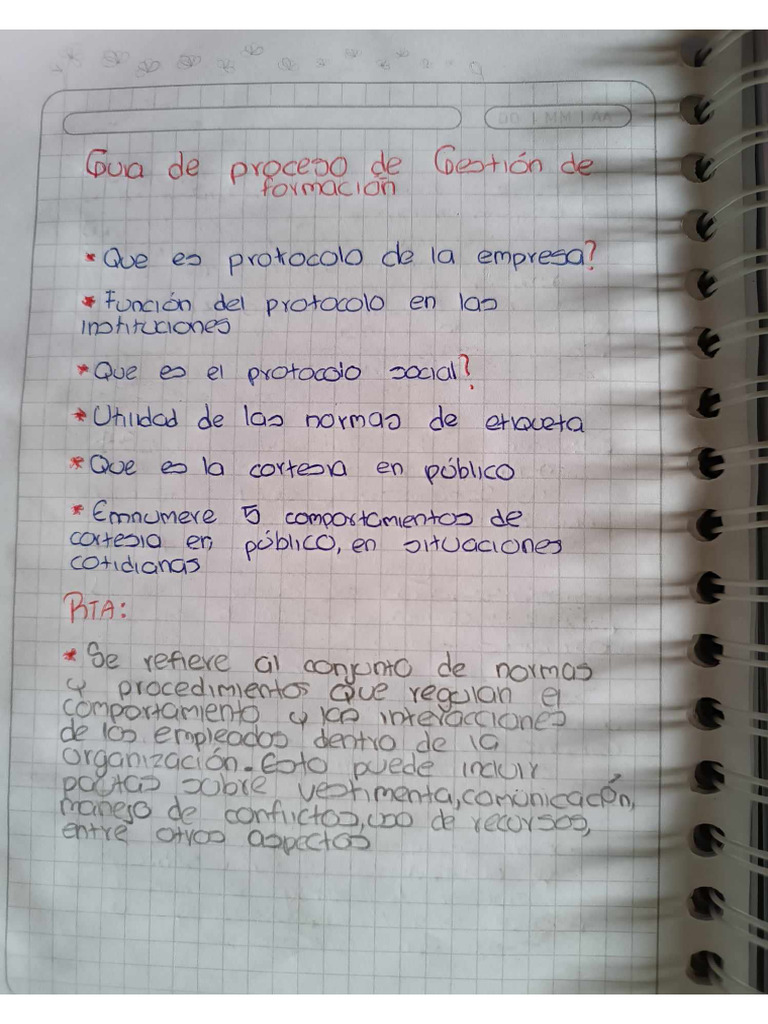 DD | MM | AA
Guia de proceso de Gestión de
formación
* Que es protocolo de la empresa?
* Función del protocolo en las
instituciones
* Que es el protocolo social?
* Utilidad de las normas de etiqueta
* Que es la cortesia en público
* Emnumere 5 comportamientos de
cortesia en público, en situaciones
cotidianas
RTA:
* Se refiere al conjunto de normas
y procedimientos que regulan el
comportamiento y las interacciones
de los empleados dentro de la
organización. Esto puede incluir
pautas sobre vestimenta, comunicación,
manejo de conflictos, uso de recursos,
entre otros aspectos